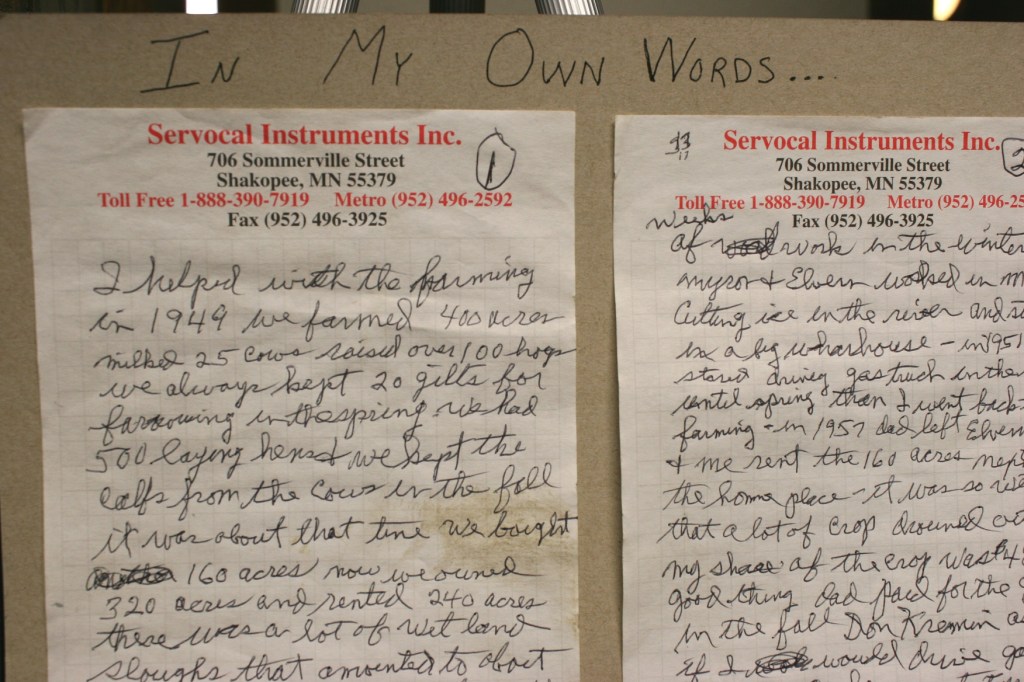 In My Own Words....
Servocal Instruments Inc.
1
706 Sommerville Street
Shakopee, MN 55379
Toll Free 1-888-390-7919 Metro (952) 496-2592
Fax (952) 496-3925
I helped with the farming
in 1949 we farmed 400 acres
milked 25 cows raised over 100 hogs
we always kept 20 gilts for
farrowing in the spring we had
500 laying hens & we kept the
calfs from the cows in the fall
it was about that time we bought
160 acres now we owned
320 acres and rented 240 acres
there was a lot of wet land
sloughs that amounted to about
13
Servocal Instruments Inc.
2
706 Sommerville Street
Shakopee, MN 55379
Toll Free 1-888-390-7919 Metro (952) 496-25
Fax (952) 496-3925
weeks
of work in the winter
myron & Elvern worked in
Cutting ice in the river and
in a big wharhouse - in 1951
stared driving gas truck in the
until spring than I went back
farming - in 1957 dad left Elvern
& me rent the 160 acres
the home place - it was so
that a lot of crop drouned
my share of the crop was $4
good thing dad paid for the
in the fall Don Kremin
if I would drive